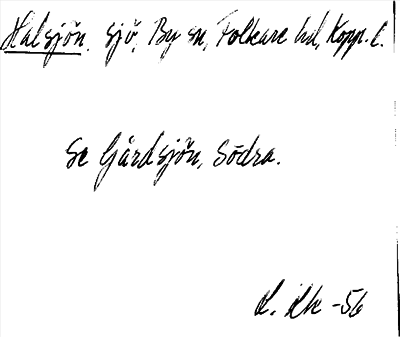 Halsjön, sjö, By sn, Folkare hd, Kopp. l.
Se Gårdsjön, Södra.
-56